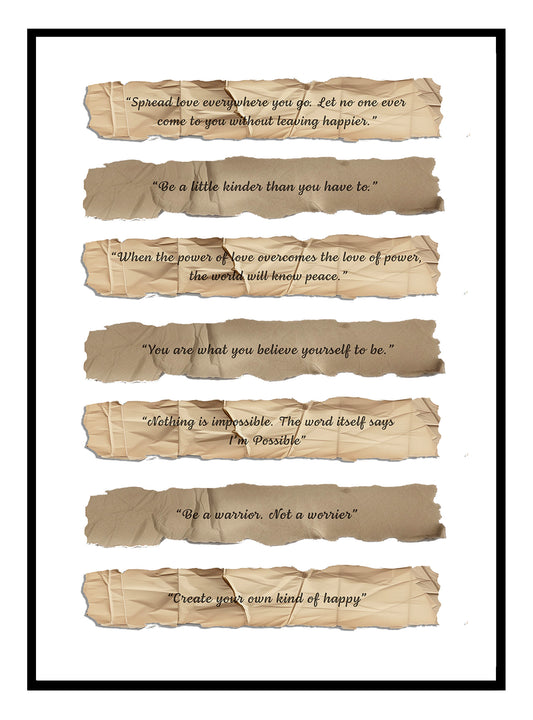 “Spread love everywhere you go. Let no one ever
come to you without leaving happier.”
“Be a little kinder than you have to.”
“When the power of love overcomes the love of power,
the world will know peace.”
“You are what you believe yourself to be.”
“Nothing is impossible. The word itself says
I'm Possible”
“Be a warrior. Not a worrier”
“Create your own kind of happy”